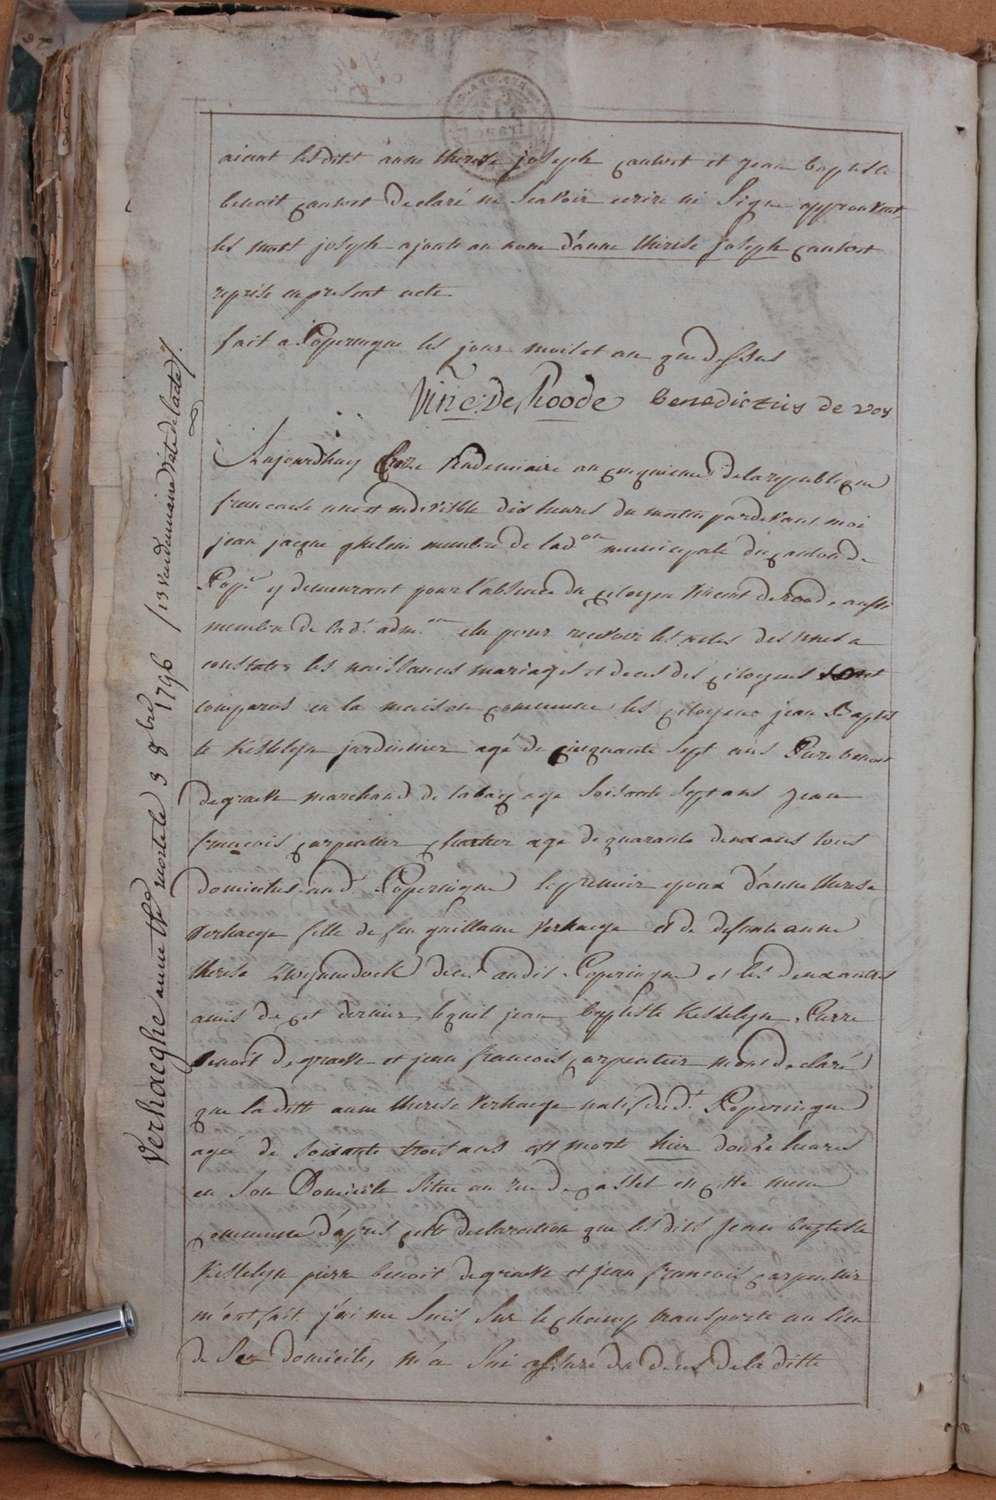 aiant lesditt anne therese joseph cauwet et jean baptiste
benoit cauwet declaré ne scavoir ecrire ni signe approuvant
les mott joseph ajoute au nom d'anne therese joseph cauwet
reprise en present acte
fait a Poperingue les jour mois et an que dessus
Vinc. De Roode benedictus de vos
Aujourdhuy treize Vendemiaire an cinquieme de la republique
francaise une et indivisible dix heures du matin pardevant moi
jean jacque ghelein membre de lad.on municipale du canton de
Pop.e y demeurant pour l'absence du citoyen Vincent de roode aussi
membre de lad.t adm.on elu pour recevoir les actes destines a
constater les naissances mariages et deces des citoyens sont
comparus en la maison commune les citoyens jean Baptis
te Kestelyn jardinier agé de cinquante sept ans Pierre benoit
degraeve marchand de tabacq age soisante sept ans jean
francois carpentier age de quarante deux ans tous
domicilies aud.t Poperingue le premier epoux d'anne therese
Verhaege fille de feu guillaume Verhaege et de defunte anne
therese deced. audit Poperingue et les deux autres
amis de cet dernier, lequel jean baptiste Kestelyn, Pierre
benoit degraeve et jean francois carpentier m'ont declaré
que la ditte anne therese Verhaege natif dud.t Poperingue
agée de soixante trois ans est morte hier douze heures
en son Domicile situe au rue de cassel en cette meme
commune d'apres cette declaration que lesdits jean baptiste
Kestelyn pierre benoit degraeve et jean francois carpentier
m'ont fait j'ai me suis sur le champ transporte au lieu
de ses domicile, m'a sui assure du deces de la ditte
Verhaeghe anne the. morte le 3 8bre 1796 / 13 vendemiaire date de l'acte /.